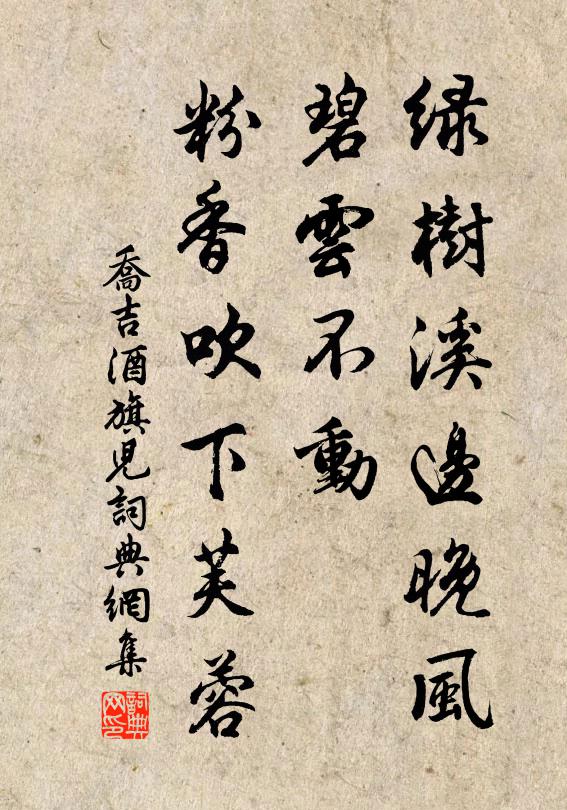 綠樹溪邊晚風
碧雲不動
粉香吹下芙蓉
喬吉酒旗兒詞典網集
詞典網印